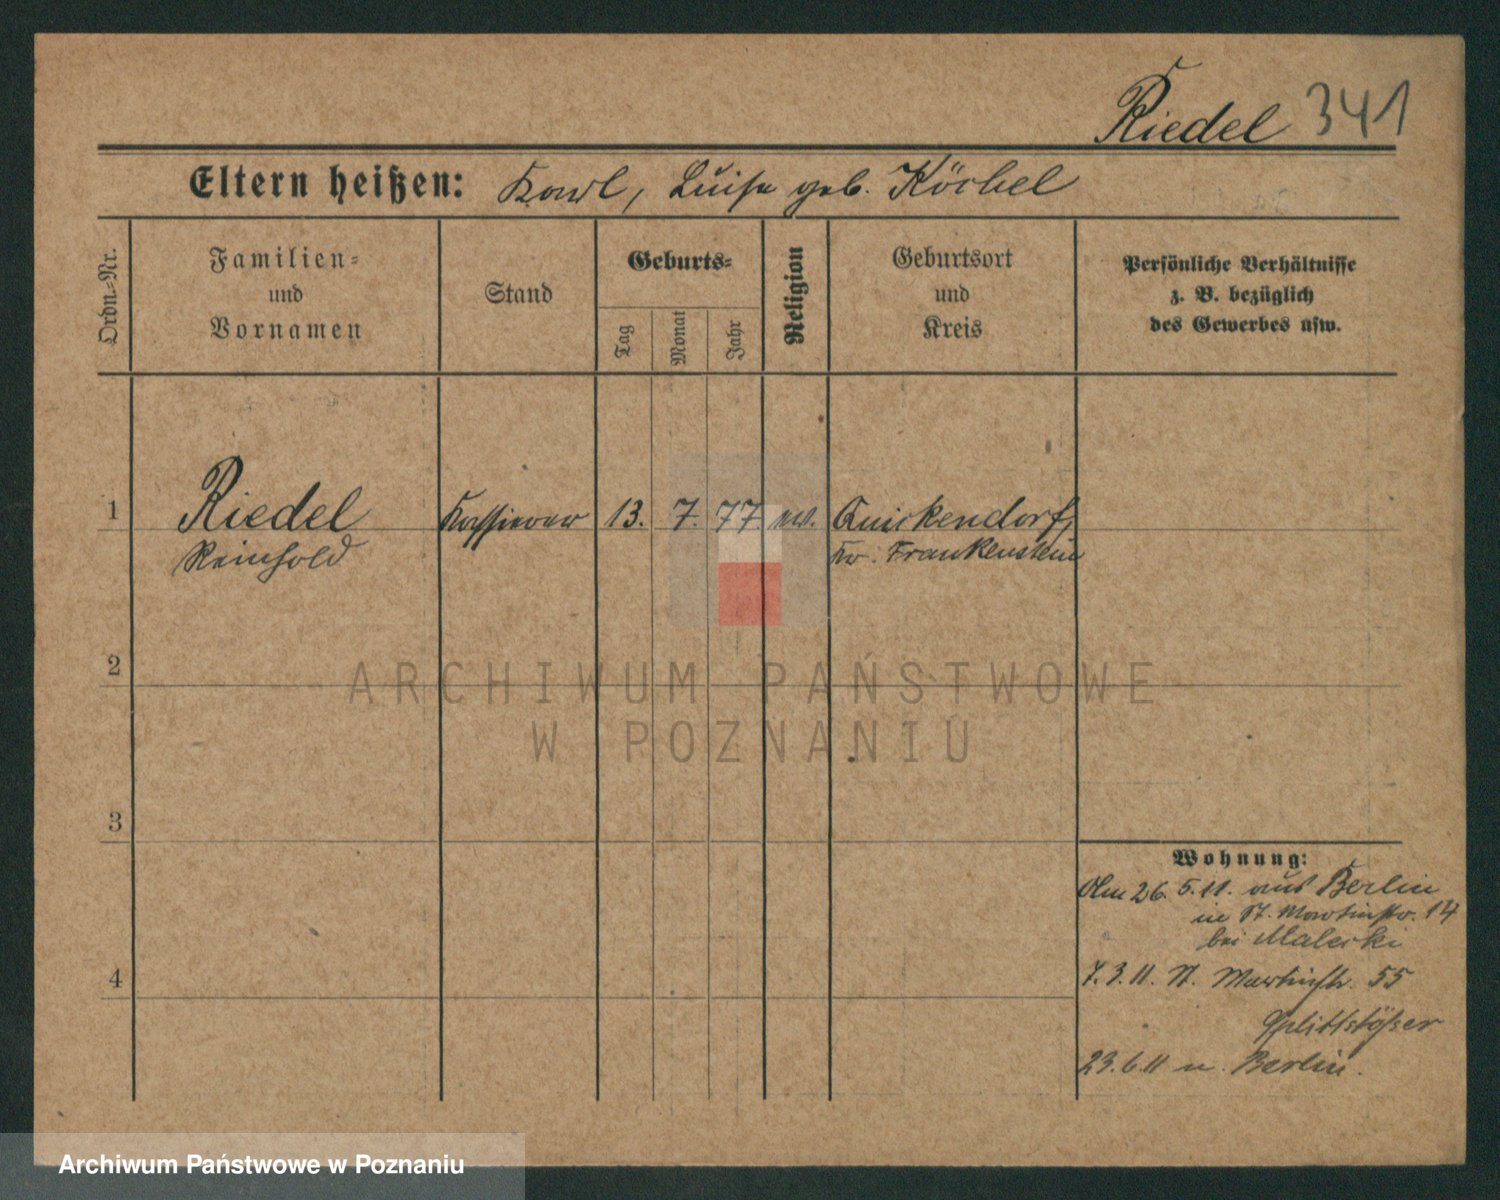 Riedel 341
Eltern heißen: Karl, Luise geb. Köchel
Ordn.-Nr.
Familien-
und
Vornamen
Stand
Geburts-
Tag
Monat
Jahr
Religion
Geburtsort
und
Kreis
Persönliche Verhältnisse
z. B. bezüglich
des Gewerbes usw.
1 Riedel Kassierer 13. 7. 77. ev. Quickendorf,
Reinhold Kr. Frankenstein
2
ARCHIWUM PAŃSTWOWE
W POZNANIU
3
Wohnung:
26. 5. 11. aus Berlin
in St. Martinstr. 14
bei Malecki
4
7. 3. 11. St. Martinstr. 55
Splittstößer
23.6.11 n. Berlin.
Archiwum Państwowe w Poznaniu